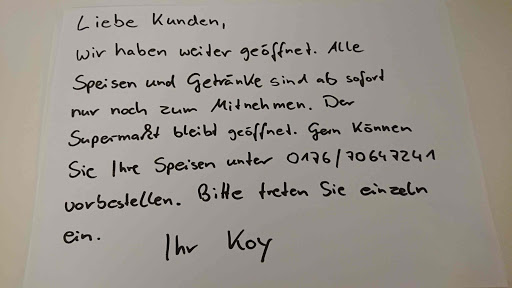 Liebe Kunden,
wir haben weiter geöffnet. Alle
Speisen und Getränke sind ab sofort
nur noch zum Mitnehmen. Der
Supermarkt bleibt geöffnet. Gern können
Sie Ihre Speisen unter 0176/70647241
vorbestellen. Bitte treten Sie einzeln
ein.
Ihr Koy